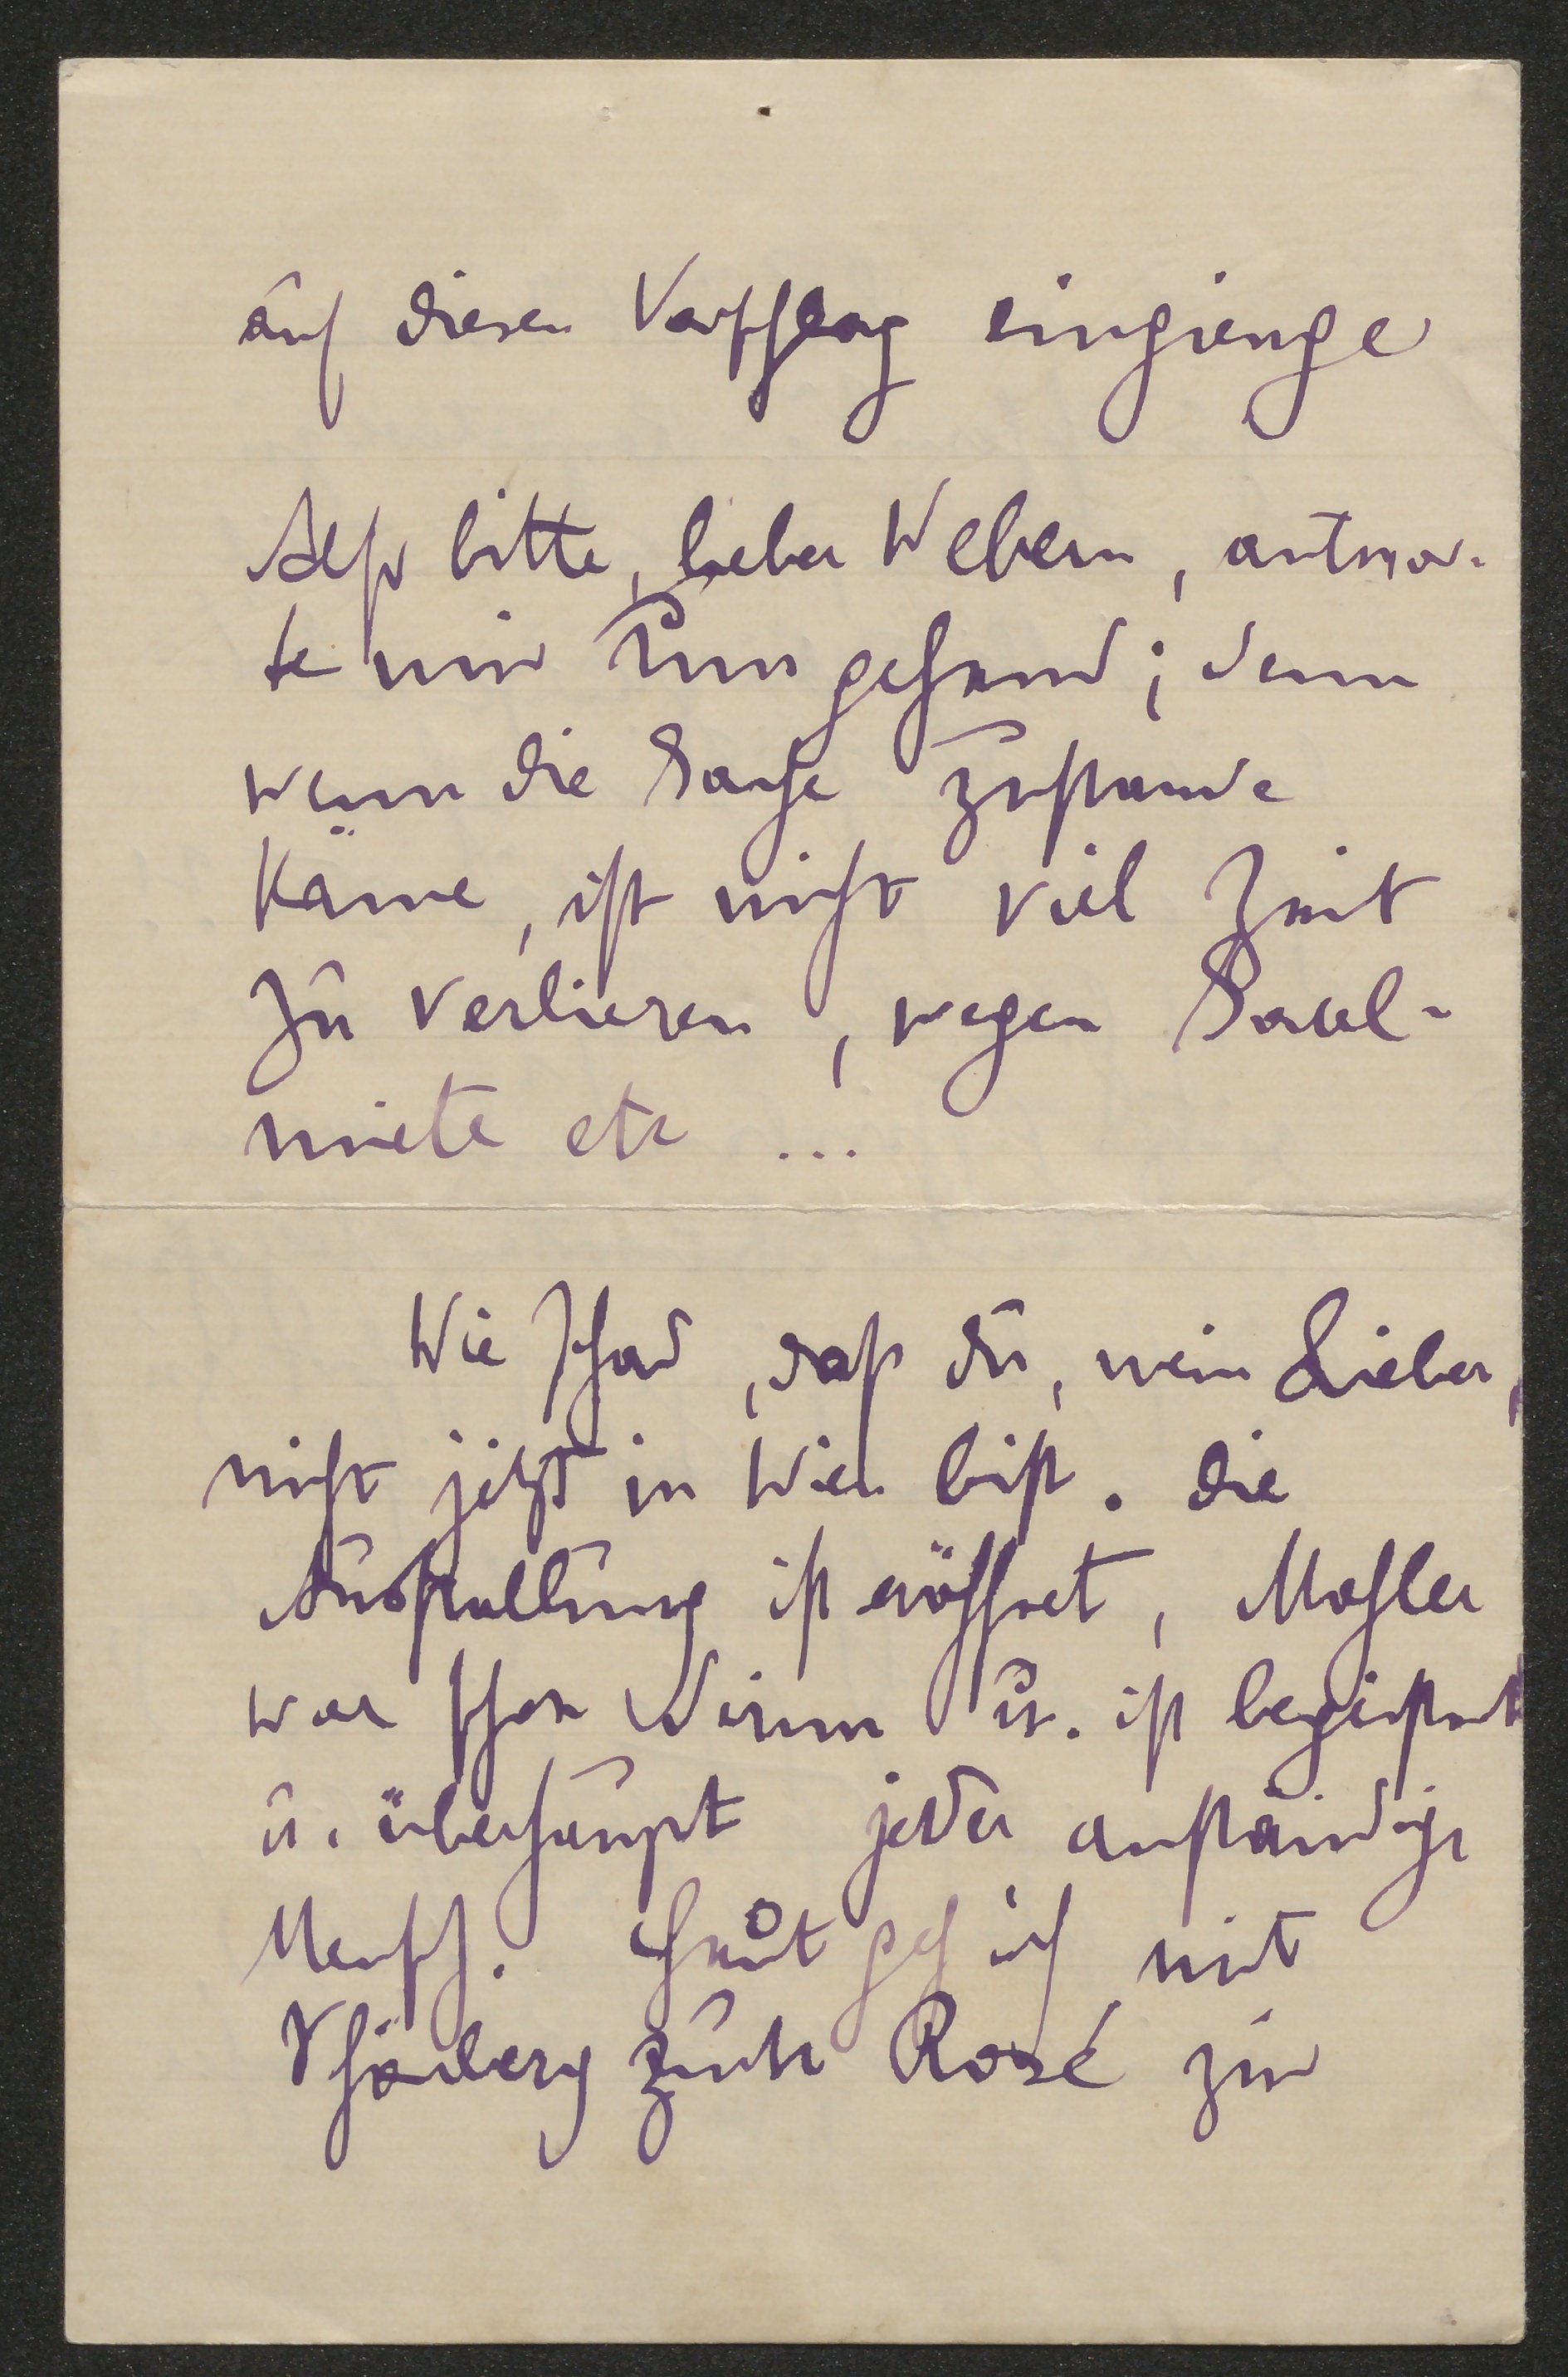 auf diesen Vorschlag eingienge
Also bitte, lieber Webern, antwor-
te mir umgehend; denn
wenn die Sache zustande
käme, ist nicht viel Zeit
zu verlieren, wegen Saal-
miete etc ...
Wie schad, daß du, mein Lieber,
nicht jetzt in Wien bist. Die
Ausstellung ist eröffnet, Mahler
war schon drinn u. ist begeistert
u. überhaupt jeder anständige
Mensch. Heut geh ich mit
Schönberg zum Rosé zur